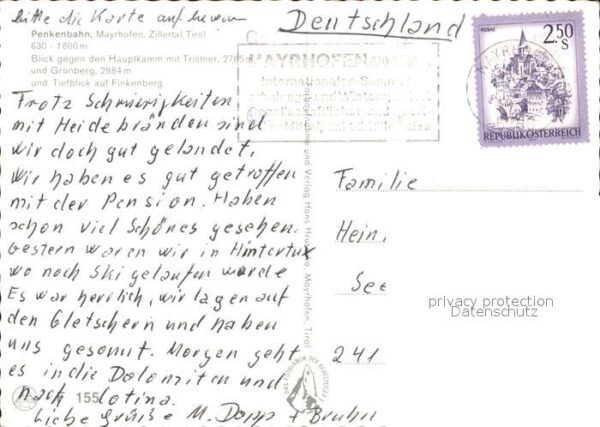 bitte die Karte aufheben
Deutschland
Penkenbahn, Mayrhofen, Zillertal, Tirol
630 - 1800 m
Blick gegen den Hauptkamm mit Tristner, 2765 m
und Grünberg, 2884 m
und Tiefblick auf Finkenberg
MAYRHOFEN 630
Internationaler
MURAU
2.50
S
REPUBLIK ÖSTERREICH
Trotz Schwierigkeiten
mit Heidebränden sind
wir doch gut gelandet,
wir haben es gut getroffen
mit der Pension. Haben
schon viel Schönes gesehen.
Gestern waren wir in Hintertux
wo noch Ski gelaufen wurde
Es war herrlich, wir lagen auf
den Gletschern und haben
uns gesonnt. Morgen geht
es in die Dolomiten und
nach
Liebe Grüsse M. Dopp +
155
und Verlag Hans Mayrhofen, Tirol
Familie
Hein
See
241
privacy protection
Datenschutz